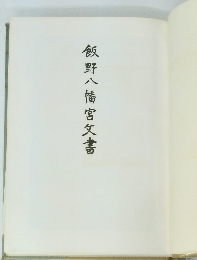 飯野八幡宮文書